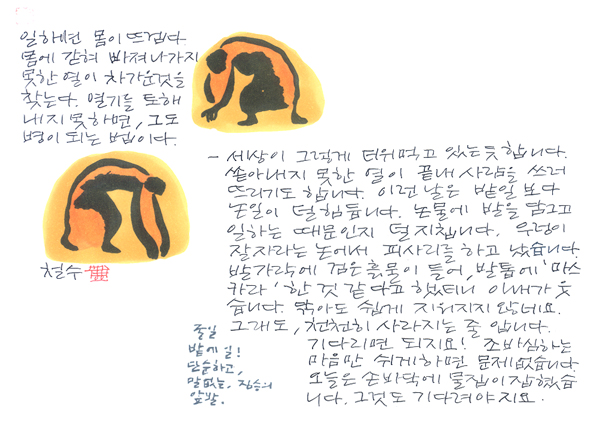 일하면 몸이 뜨겁다.
몸에 갇혀 빠져나가지
못한 열이 차가운것을
찾는다. 열기를 토해
내지 못하면, 그도
병이 되는 법이다.
철수
- 세상이 그렇게 더위먹고 있는듯 합니다.
쏟아내지 못한 열이 끝내 사람을 쓰러
뜨리기도 합니다. 이런 날은 밭일 보다
논일이 덜 힘듭니다. 논물에 발을 담그고
일하는 때문인지 덜 지칩니다. 우렁이
잘자라는 논에서 피사리를 하고 났습니다.
발가락에 검은 흙물이 들어, 발톱에 '마스
카라' 한 것 같다고 했더니 아내가 웃
습니다. 닦아도 쉽게 지워지지 않네요.
그래도, 천천히 사라지는 줄 압니다.
기다리면 되지요! 조바심하는
마음만 쉬게하면 문제없습니다.
오늘은 손바닥에 물집이 잡혔습
니다. 그것도 기다려야지요.
종일
밭에 일!
단순하고,
말없는, 짐승의
앞발.